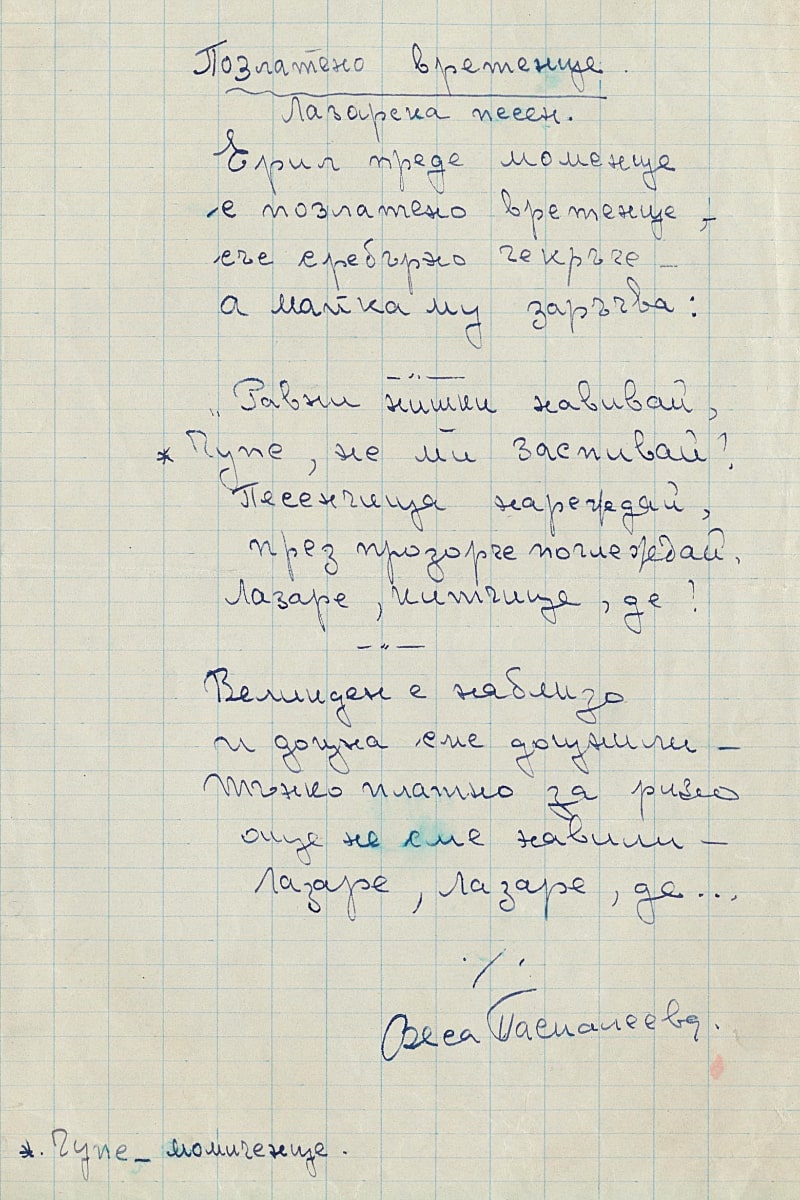 Позлатено вретенце.
Лазарска песен.
Ерил преде моменце
с позлатено вретенце,
със сребърно чекръче –
а майка му заръчва:
–„–
„Равни нишки навивай,
* Чупе, не ми заспивай!
Песенчица нареждай,
през прозорче поглеждай.
Лазаре, китчице, де!
–„–
Великден е наблизо
и дошла сме
Тънко платно за риза
още не сме навили –
Лазаре, Лазаре, де...
./.
Веса Паспалеева.
*. Чупе – момиченце.